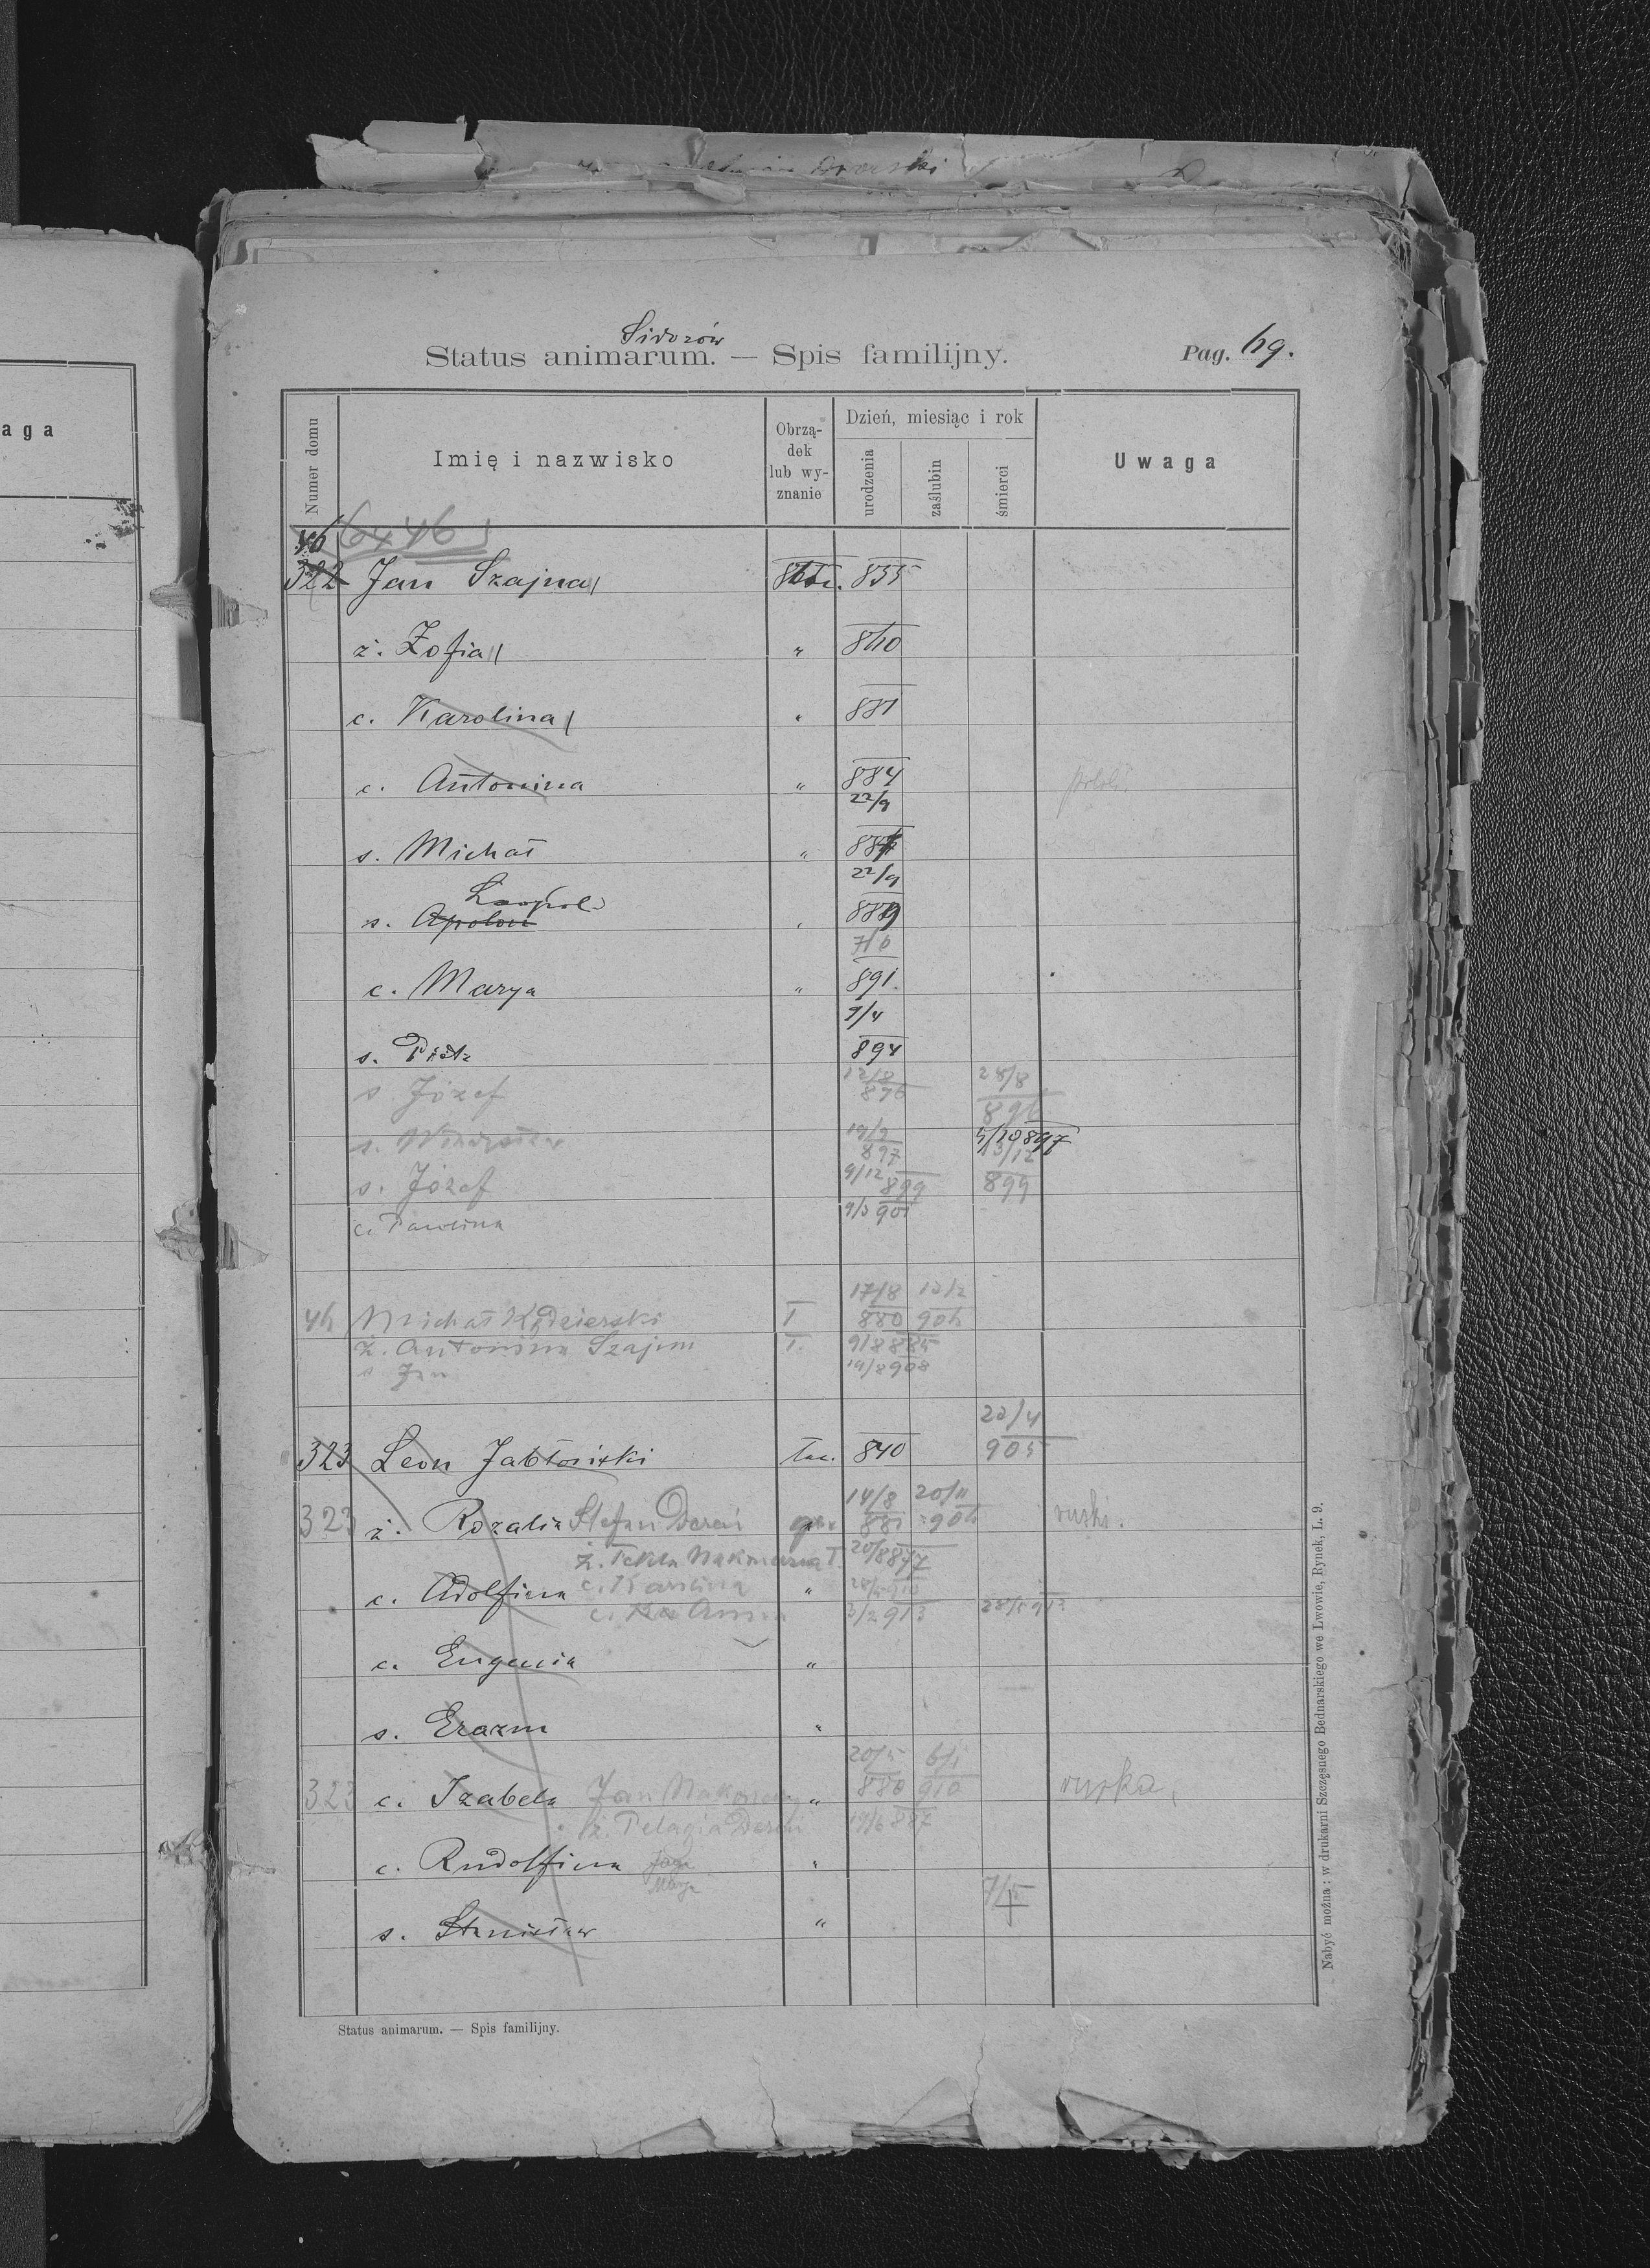 aga
Sidorów
Status animarum. — Spis familijny.
Pag. 69.
Numer domu
Imię i nazwisko
Obrzą-
dek
lub wy-
znanie
Dzień, miesiąc i rok
urodzenia
zaślubin
śmierci
Uwaga
46
322 Jan Szajna 835
ż. Zofia " 840
c. Karolina " 881
c. Antonina " 884
22/9
s. Michał " 887
22/9
Leopold
s. Apolon " 889
7/6
c. Marya " 891
9/4
s. Piotr 894
s. Józef 12/8 896 28/8 896
s. Władysław 19/9 897 5/10 897
s. Józef 9/12 899 13/12 899
c. Paulina 9/3 901
46 Michał Kędzierski T 17/8 880 12/2 906
ż. Antonina Szajna T. 9/8 885
s. Jan 19/8 908
323 Leon Jabłoński łac. 840 22/4 905
323 ż. Rozalia Stefan Dereń 14/8 881 20/11 906 ruski.
ż. Tekla T. 20/8 887
c. Adolfina c. Karolina "
c. Anna 3/2 913
c. Eugenia "
s. Erazm "
323 c. Izabela Jan " 20/5 880 6/1 910 ruska
ż. Pelagia Dereń 19/6 887
c. Rudolfina "
Marya
s. Stanisław " 7/5
Status animarum. — Spis familijny.
Nabyć można: w drukarni Szczęsnego Bednarskiego we Lwowie, Rynek, L. 9.